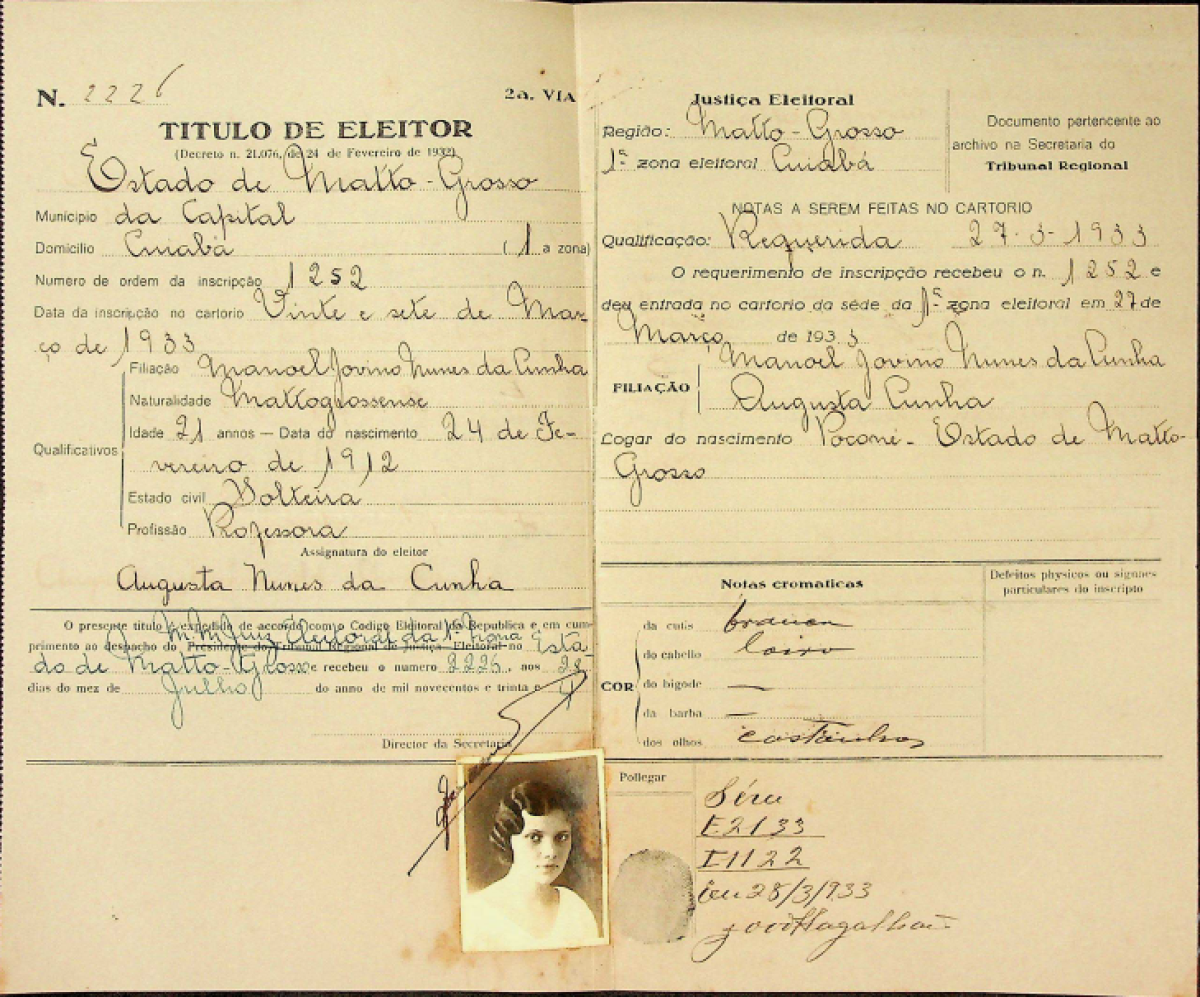 N. 2226
2a. VIA
TITULO DE ELEITOR
(Decreto n. 21.076, de 24 de Fevereiro de 1932)
Estado de Matto-Grosso
Municipio da Capital
Domicilio Cuiabá (1 a zona)
Numero de ordem da inscripção 1252
Data da inscripção no cartorio Vinte e sete de Mar-
ço de 1933
Filiação Manoel Jovino Nunes da Cunha
Naturalidade Mattogrossense
Qualificativos
Idade 21 annos — Data do nascimento 24 de Fe-
vereiro de 1912
Estado civil Solteira
Profissão Professora
Assignatura do eleitor
Augusta Nunes da Cunha
O presente titulo é expedido de accordo com o Codigo Eleitoral da Republica e em cum-
M. M. Juiz Eleitoral da 1ª Zona
primento ao despacho do Presidente do Tribunal Regional de Justiça Eleitoral no Esta-
do de Matto-Grosso e recebeu o numero 2226, aos 28
dias do mez de Julho do anno de mil novecentos e trinta e 4
Director da Secretaria
Justiça Eleitoral
Região: Matto-Grosso
1ª zona eleitoral Cuiabá
Documento pertencente ao
archivo na Secretaria do
Tribunal Regional
NOTAS A SEREM FEITAS NO CARTORIO
Qualificação: Requerida 27-3-1933
O requerimento de inscripção recebeu o n. 1252 e
deu entrada no cartorio da séde da 1ª zona eleitoral em 27 de
Março de 1933
FILIAÇÃO
Manoel Jovino Nunes da Cunha
Augusta Cunha
Logar do nascimento Poconé - Estado de Matto-
Grosso
Notas cromaticas
Defeitos physicos ou signaes
particulares do inscripto
COR
da cutis branca
do cabello loiro
do bigode —
da barba —
dos olhos castanhos
Pollegar
Série
E 2133
I 1122
Em 28/3/933